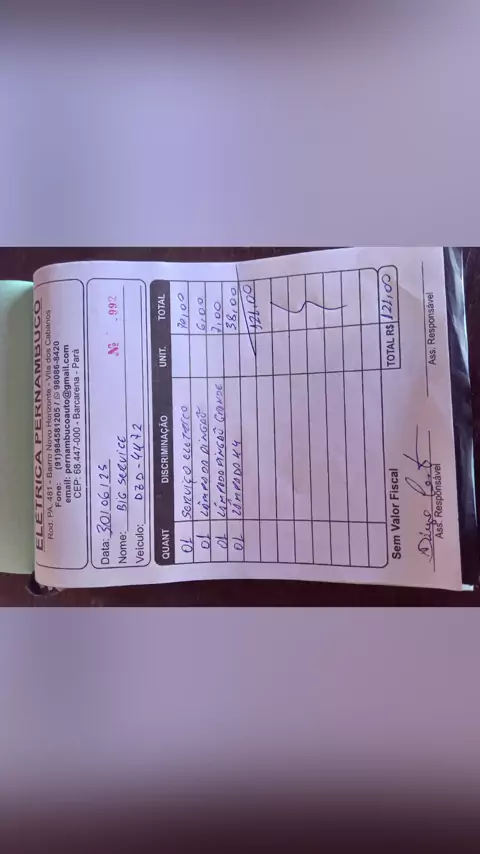 ELÉTRICA PERNAMBUCO
Rod. PA, 481 - Bairro Novo Horizonte - Vila dos Cabanos
Fone: (91)984581205 / 98086-8420
email: pernambucoauto@gmail.com
CEP: 68.447-000 - Barcarena - Pará
Data: 30/06/25 Nº 992
Nome: BIG SERVICE
Veículo:
QUANT DISCRIMINAÇÃO UNIT. TOTAL
01 SERVIÇO ELETRICO 70,00
01 LÂMPADA PINGÃO 6,00
01 LÂMPADA PINGÃO GRANDE 7,00
01 LÂMPADA H4 38,00
121,00
Sem Valor Fiscal TOTAL R$ 121,00
Diego
Ass. Responsável Ass. Responsável